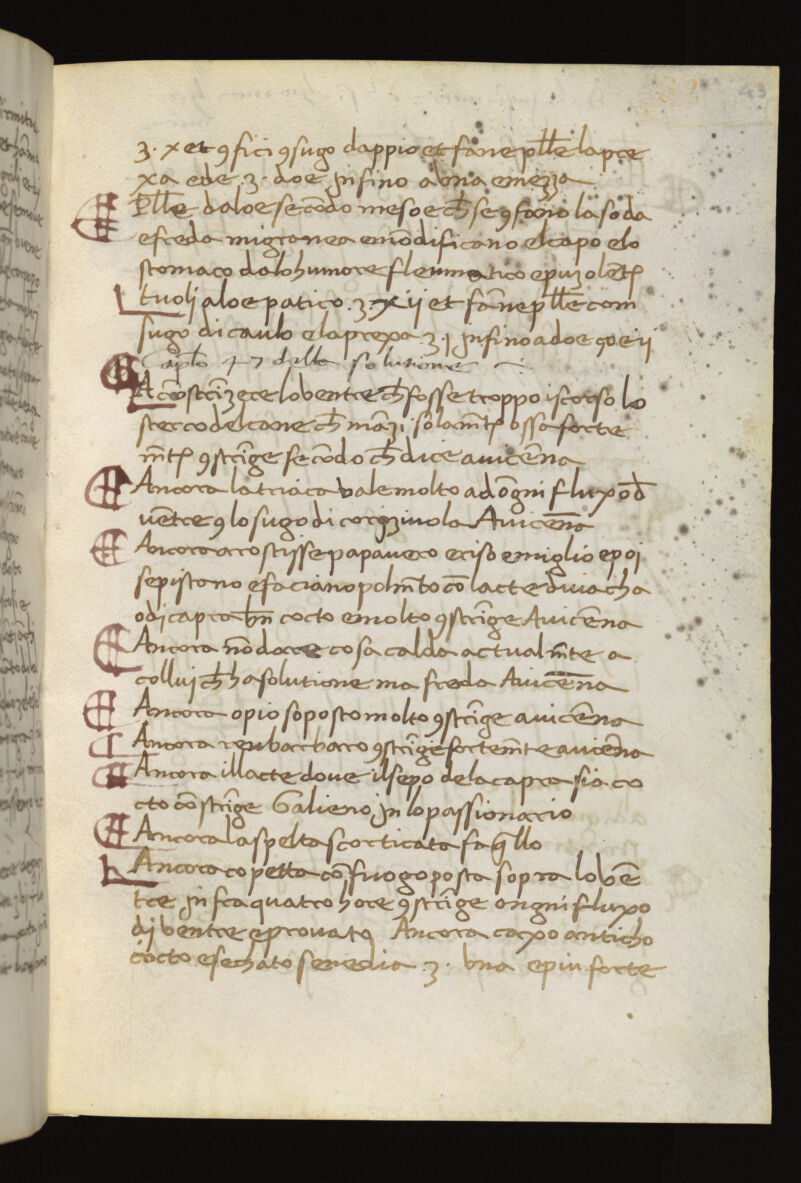 ʒ. x et ꝯfici ꝯ sugo dappio et fane pll̄e la pre
xa e de .ʒ. doe jnfino a vna e mezza
Pll̄e daloe secōdo mesoe ch̄ se ꝯfāno la soda
e freda migranea emōdificano el capo elo
stomaco dalo humore flenmatico e puzolēt
tuolj aloe patico .ʒ. xij et fāne pll̄e com
sugo di caulo e la prexa .ʒ. j jnfino a doe
Caplo 47 della solutione
A cōstrīzere lo ventre ch̄ fosse troppo iscorso lo
sterco del cane ch̄ māzi solamt̄ ossa forte
mt̄ ꝯstrīge secōdo ch̄ dice avicēna
Ancora la triaca vale molto ad ōgni fluxo d̄
vētre ꝯ lo sugo di corezivola Avicēna
Ancora arostisse papavero e riso e miglio e poi
se pistano e faciano polmēto cō lacte di vacha
o di capra bn̄ cocto e molto ꝯstrīge Avicēna
Ancora nō dare cosa calda actualmt̄e a
collui ch̄ ha solutione ma freda Avicēna
Ancora opio soposto molto ꝯstrīge avicēna
Ancora reubarbaro ꝯstrīge fortemt̄e avicēna
Ancora il lacte dove il sepo dela capra sia co
cto cōstrīge Galieno jn lo passionario
Ancora la spelta scorticata fa qllo
Ancora copetta cō fuogo posta sopra lo vē
tre jn fra quatro hore ꝯstrīge ongni fluxo
dj ventre e provato Ancora caxo anticho
cocto e sechato se ne dia .ʒ. vna e piu forte